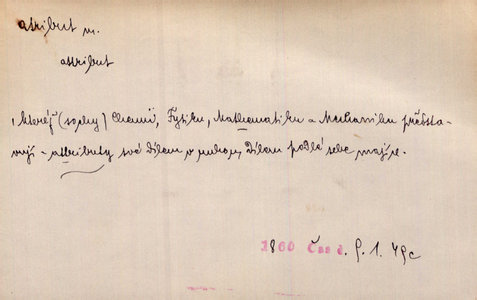 atribut m.
attribut
, kteréž (sochy) Chemii, Fysiku, Mathematiku a Mechaniku představ-
ují - attributy své dílem v rukou, dílem podlé sebe majíce.
1860 Čas č. 1. 49c